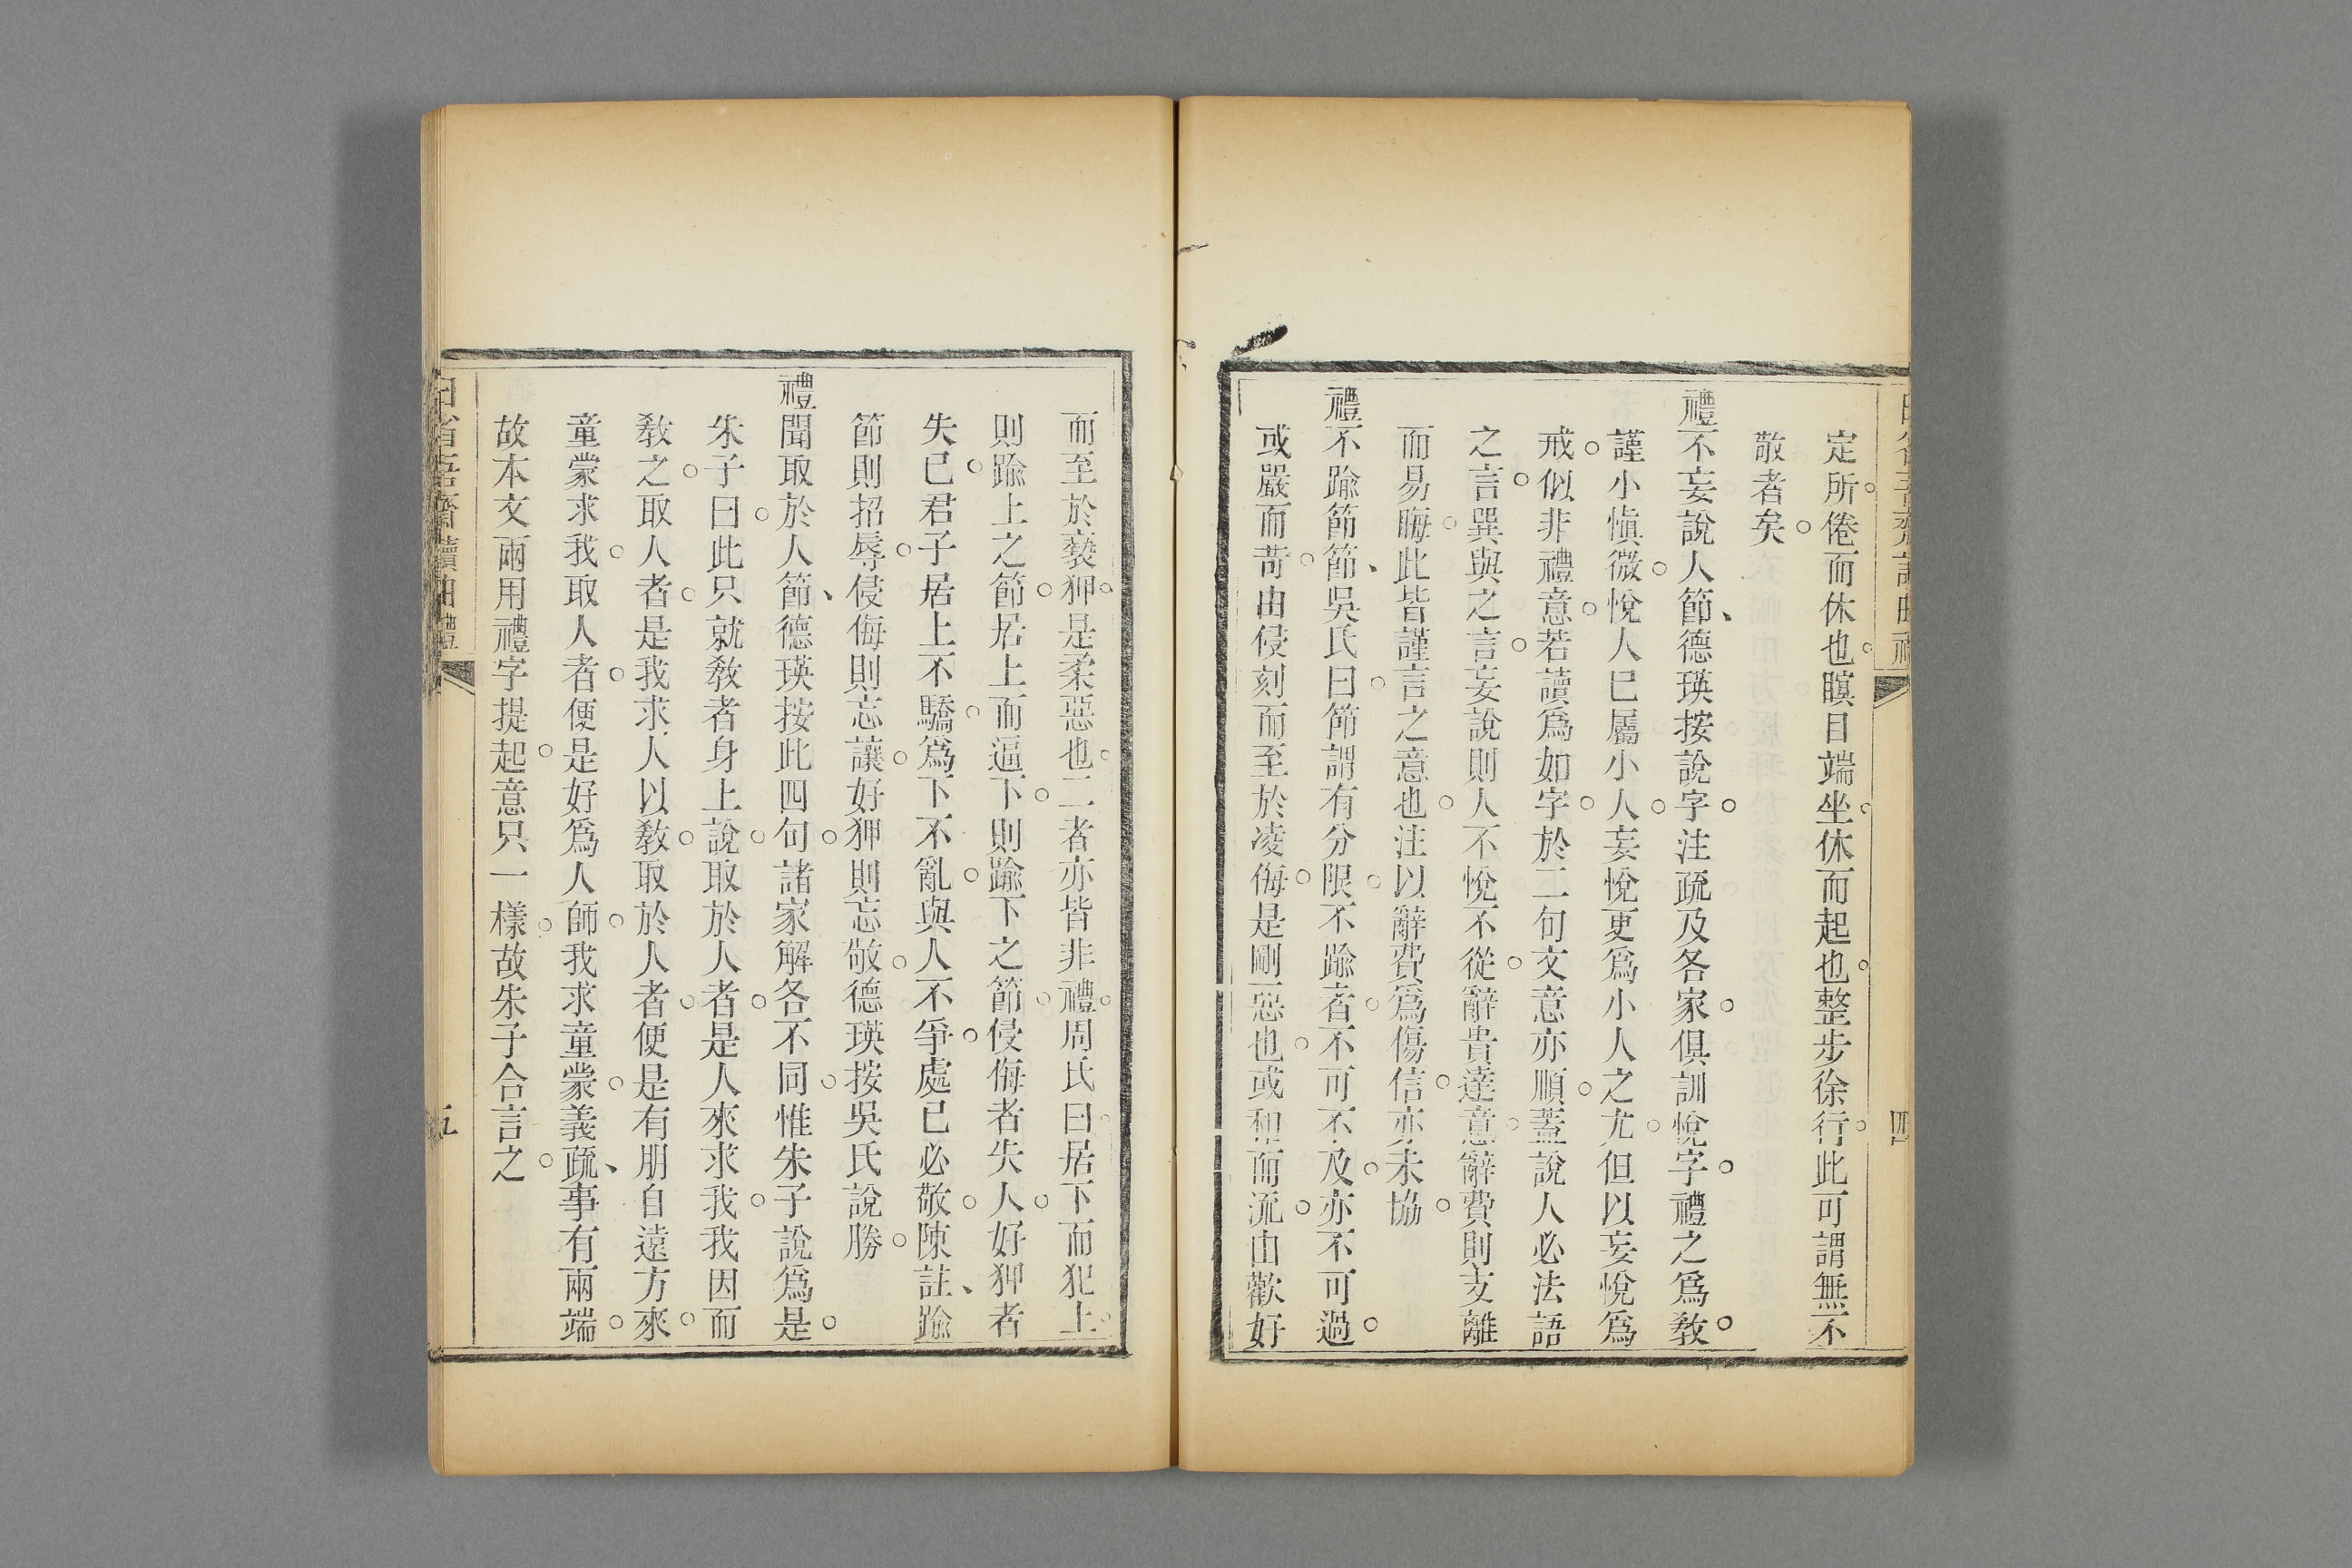 定所。倦而休也。瞑目端坐。休而起也。整步徐行。此可謂無不
敬者矣。
禮不妄說人節、德瑛按說字。注疏及各家。俱訓悅字。禮之爲敎。
謹小愼微。悅人已屬小人。妄悅更爲小人之尤。但以妄悅爲
戒。似非禮意。若讀爲如字。於二句文意亦順。蓋說人必法語
之言。巽與之言。妄說則人不悅不從。辭貴達意。辭費則支離
而易晦。此皆謹言之意也。注以辭費爲傷信。亦未協。
禮不踰節節、吳氏曰。節謂有分限。不踰者。不可不及。亦不可過。
或嚴而苛。由侵刻而至於凌侮。是剛惡也。或和而流。由歡好
而至於褻狎。是柔惡也。二者亦皆非禮。周氏曰。居下而犯上。
則踰上之節。居上而逼下。則踰下之節。侵侮者失人。好狎者
失己。君子居上不驕。爲下不亂。與人不爭。處己必敬。陳註、踰
節則招辱。侵侮則忘讓。好狎則忘敬。德瑛按吳氏說勝。
禮聞取於人節、德瑛按此四句。諸家解各不同。惟朱子說爲是。
朱子曰。此只就敎者身上說。取於人者。是人來求我。我因而
敎之。取人者。是我求人以敎。取於人者。便是有朋自遠方來。
童蒙求我。取人者。便是好爲人師。我求童蒙。義疏、事有兩端。
故本文兩用禮字提起。意只一樣。故朱子合言之。
日省吾齋讀曲禮
五
四